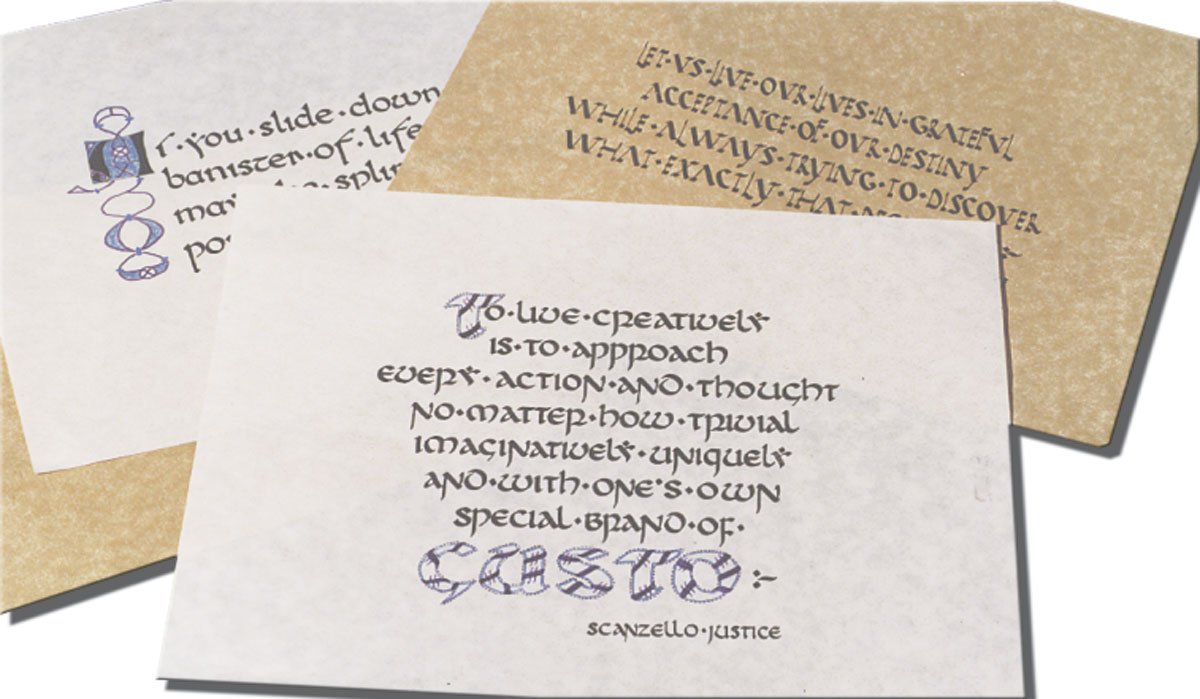 If·you·slide·down
banister·of·life
may
LET·VS·LIVE·OVR·LIVES·IN·GRATEFUL
ACCEPTANCE·OF·OVR·DESTINY
WHILE·ALWAYS·TRYING·TO·DISCOVER
WHAT·EXACTLY·THAT
To·live·creatively
is·to·approach
every·action·and·thought
no·matter·how·trivial
imaginatively·uniquely
and·with·one's·own
special·brand·of·
GUSTO:~
SCANZELLO·JUSTICE